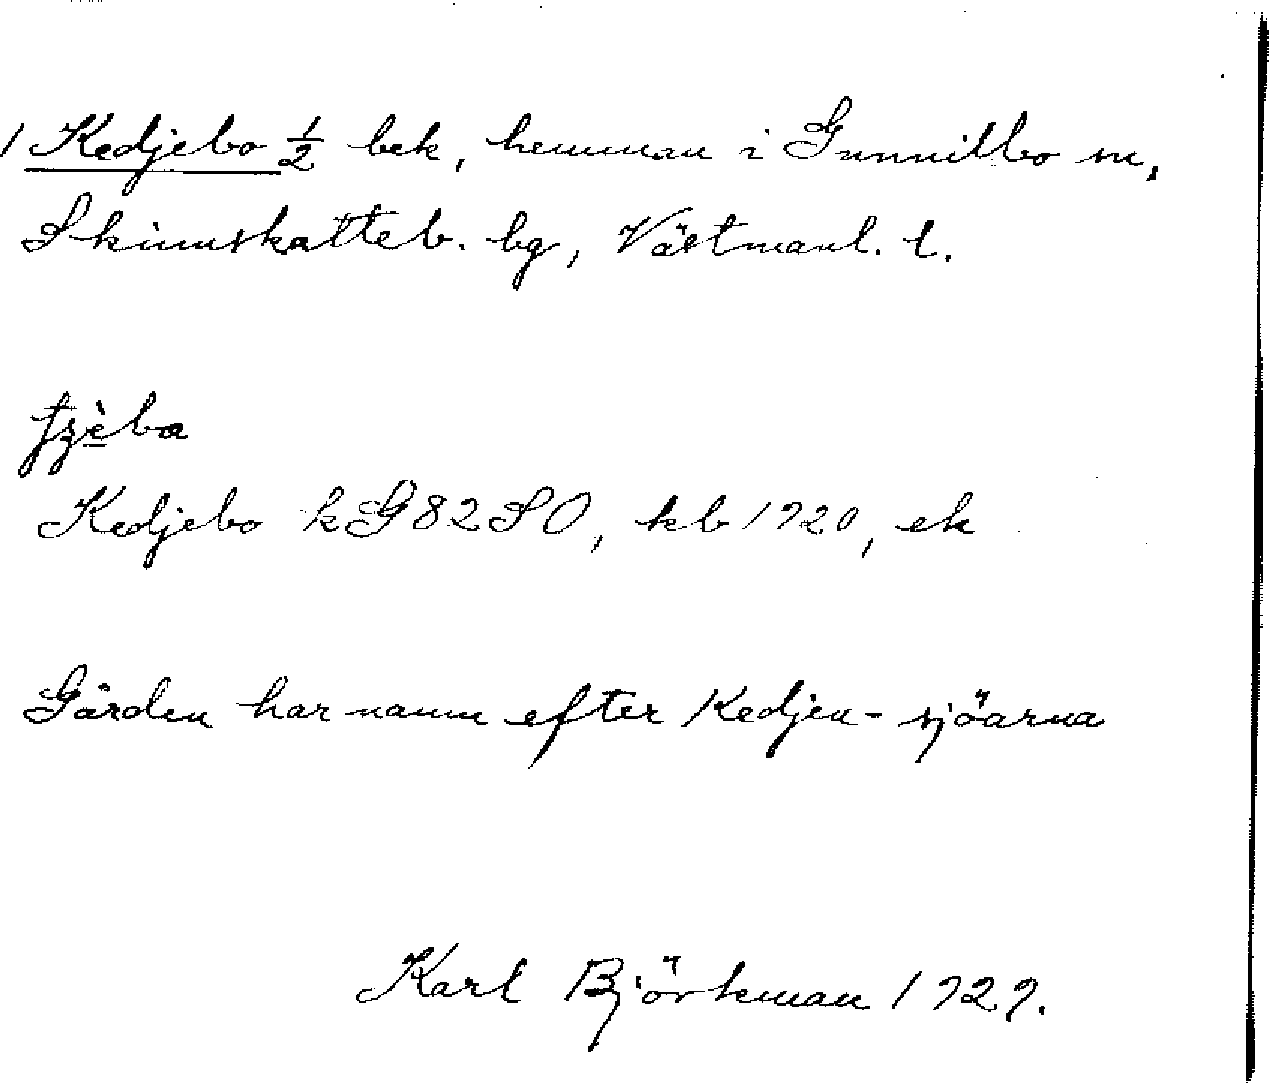 1 Kedjebo 1/2 bek, hemman i Gunnilbo sn,
Skinnskatteb. bg, Västmanl. l.
Kedjebo kG82SO, kb 1920, ek
Gården har namn efter Kedjen-sjöarna
Karl Björkman 1929.